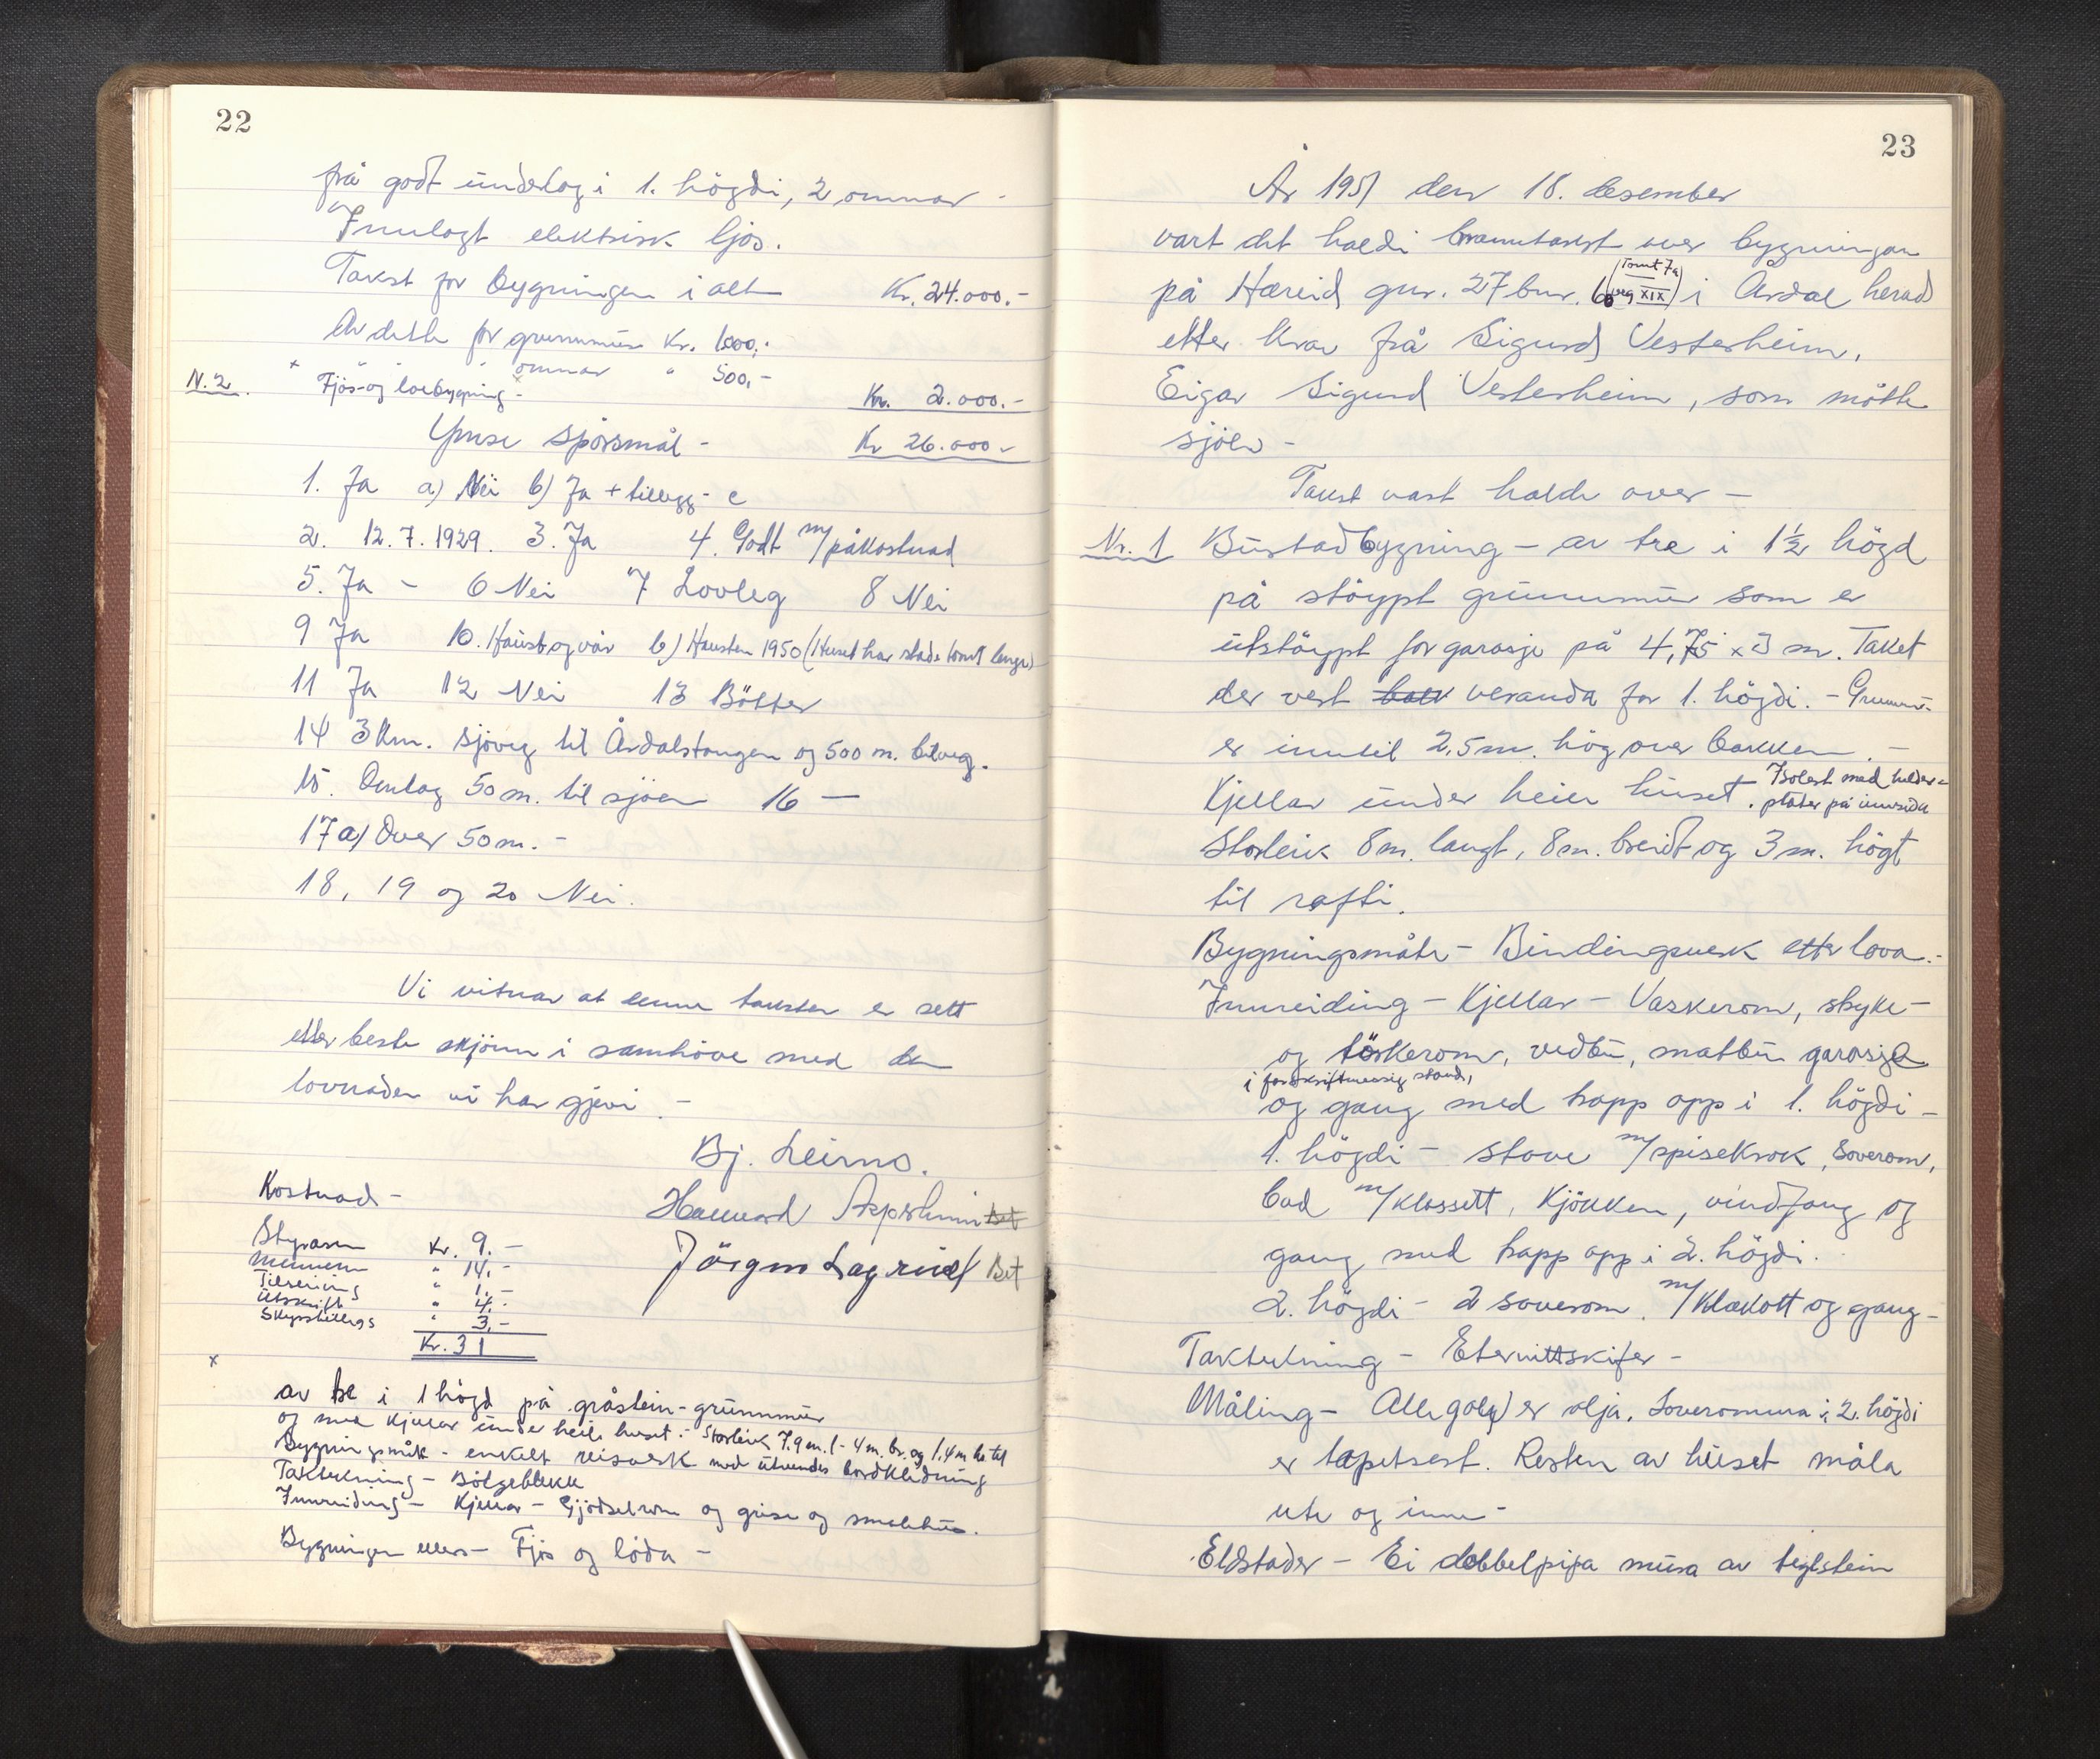 22
frå godt underlag i 1. högdi, 2 omnar -
Innlagt elektrisk ljos.
Takst for bygningen i alt Kr. 24.000.-
Av dette for grunnmur Kr. 1000,-
" " " omnar " 500,-
N. 2 x Fjös- og loebygning - Kr. 2.000.-
Ymse spörsmål - Kr 26.000.-
1. Ja a) Nei b) Ja + tillegg - c
2. 12.7.1929. 3. Ja 4. Godt m/påkostnad
5. Ja - 6 Nei 7 Lovleg 8 Nei
9 Ja 10. Haust og vår b) Hausten 1950 (Huset har stade tomt lenge)
11 Ja 12 Nei 13 Bötter
14 3 km. sjöveg til Årdalstangen og 500 m. bilveg.
15. Omlag 50 m. til sjöen 16 —
17 a) Over 50 m. -
18, 19 og 20 Nei.
Vi vitnar at denne taksten er sett
etter beste skjönn i samhöve med den
lovnaden vi har gjevi. -
Bj. Leirmo.
Kostnad -
Hallvard Asperheim Bet
Styraren Kr. 9. -
Mennene " 14, -
Jörgen Lægreid Bet
Tilreiing " 1. -
Utskrift " 4. -
Skysstillegg " 3, -
Kr. 31
x
av tre i 1 högd på gråstein-grunnmur
og med kjellar under heile huset. - Storleik 7.9 m. l - 4 m. br. og 1.4 m. hö. til
Bygningsmåte - enkelt reisverk med utvendes bordkledning
Taktekning - Bölgeblekk
Innreiding - Kjellar - Gjödselrom og grise og smalehus.
Bygningen ellers - Fjös og löda -
23
År 1951 den 18. desember
vart det haldi branntakst over bygningan
på Hæreid gnr. 27 bnr. 6 (Tomt 7a veg XIX) i Årdal herad
etter krav frå Sigurd Vesterheim.
Eigar Sigurd Vesterheim, som mötte
sjölv -
Takst vart halde over -
Nr. 1 Bustadbygning - av tre i 1 1/2 högd
på stöypt grunnmur som er
utstöypt for garasje på 4,75 x 3 m. Taket
der vert veranda for 1. högdi. - Grunnm.
er inntil 2,5 m. hög over bakken. -
Kjellar under heile huset. Isolert med treder-
plater på innsida
Storleik 8 m. langt, 8 m. breidt og 3 m. högt
til rafti.
Bygningsmåte - Bindingsverk etter lova. -
Innreiding - Kjellar - Vaskerom, stryke-
og törkerom, vedbu, matbu garasje
i forskriftmessig stand,
og gang med trapp opp i 1. högdi -
1. högdi - stove m/spisekrok, soverom,
bad m/klossett, kjökken, vindfang og
gang med trapp opp i 2. högdi.
2. högdi - 2 soverom. m/klekott og gang -
Taktekning - Eternittskifer -
Måling - Alle golv er olja. Soveromma i 2. högdi
er tapetsert. Resten av huset måla
ute og inne -
Eldstader - Ei dobbelpipa mura av teglstein